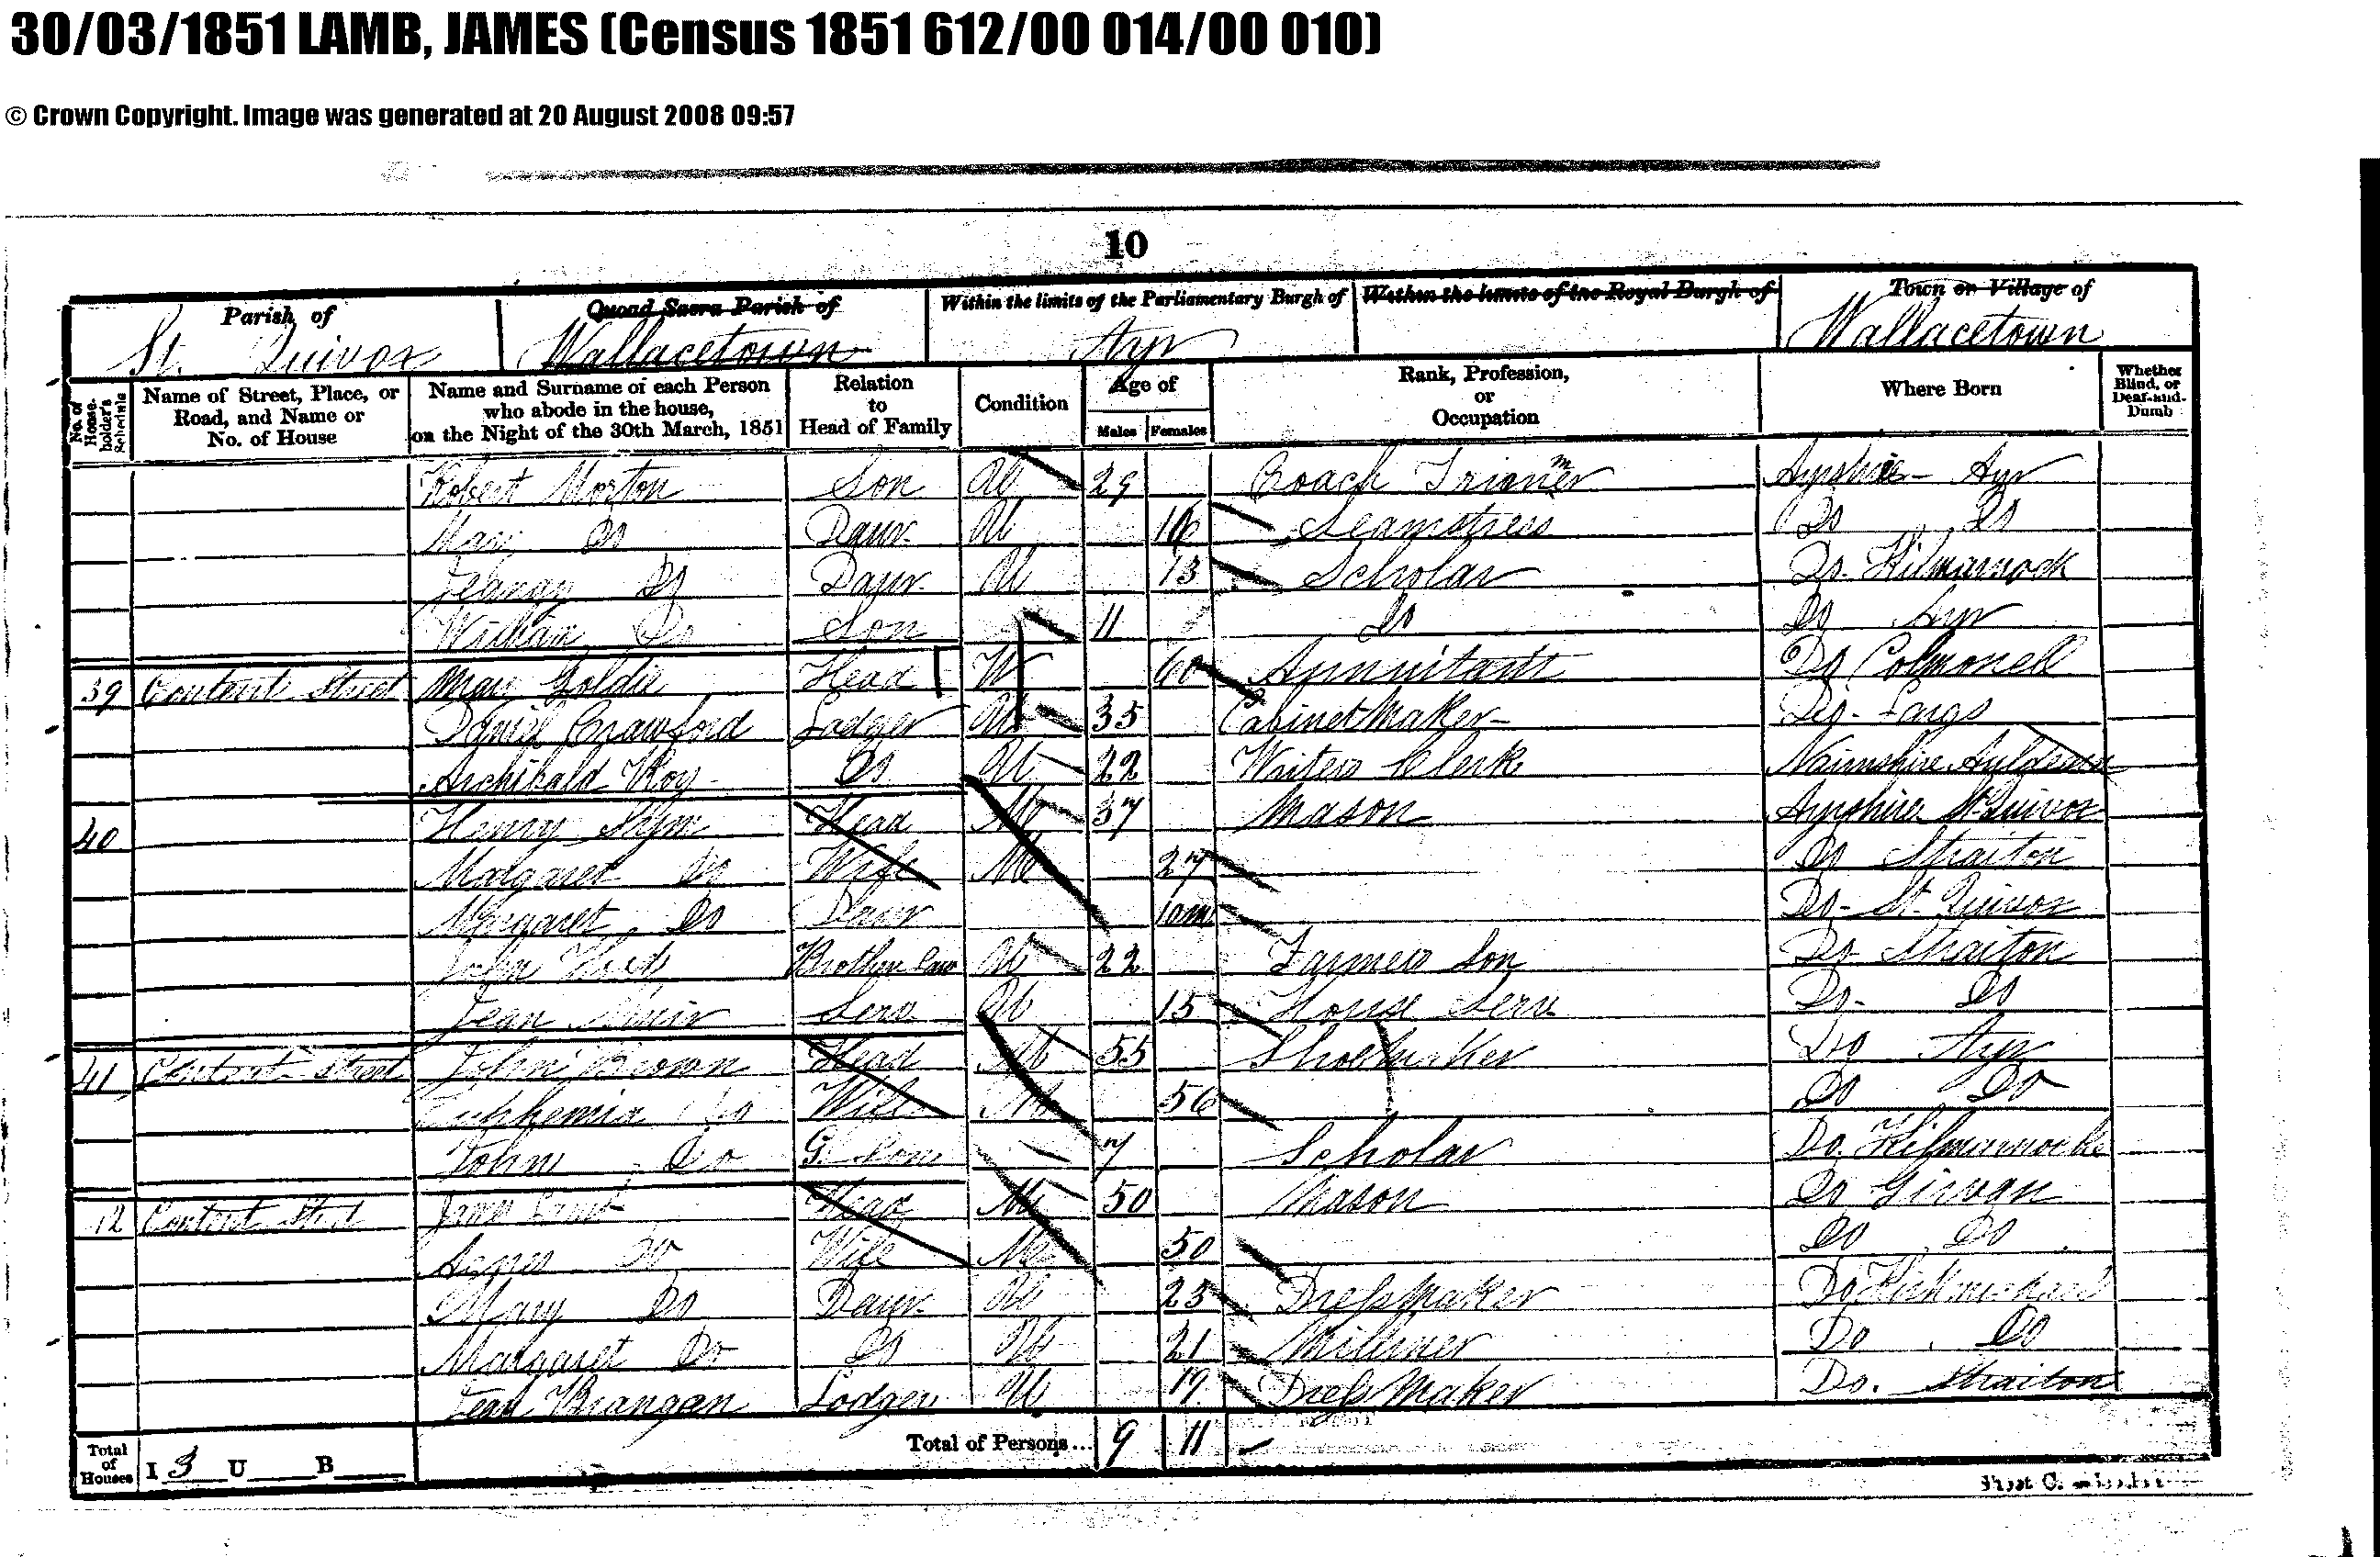 30/03/1851 LAMB, JAMES (Census 1851 612/00 014/00 010)
© Crown Copyright. Image was generated at 20 August 2008 09:57
10
Parish of Quoad Sacra Parish of Within the limits of the Parliamentary Burgh of Within the limits of the Royal Burgh of Town or Village of
St. Quivox Wallacetown Ayr Wallacetown
No. of House-holder's Schedule Name of Street, Place, or Road, and Name or No. of House Name and Surname of each Person who abode in the house, on the Night of the 30th March, 1851 Relation to Head of Family Condition Age of Males Females Rank, Profession, or Occupation Where Born Whether Blind, or Deaf-and-Dumb
Robert Morton Son U 29 Coach Trimmer Ayrshire - Ayr
Mary Do Daur. U 16 Seamstress Do Do
Do Daur. U 13 Scholar Do. Kilmarnock
William Do Son 11 Do Do Ayr
39 Content Street Mary Goldie Head W 60 Annuitant Do Colmonell
Daniel Crawford Lodger U 35 Cabinet Maker Do - Largs
Archibald Roy Do U 22 Writers Clerk Nairnshire Auldearn
40 Henry Head M 37 Mason Ayrshire St. Quivox
Margaret Do Wife M 27 Do Straiton
Margaret Do Daur 10m Do - St. Quivox
John Brother Law U 22 Farmers Son Do Straiton
Jean Serv. U 15 House Serv Do - Do
41 Content Street John Brown Head M 55 Shoemaker Do Ayr
Euphemia Do Wife M 56 Do Do
John Do G. Son 7 Scholar Do. Kilmarnock
42 Content Street James Lamb Head M 50 Mason Do Girvan
Agnes Do Wife M 50 Do Do
Mary Do Daur. U 23 Dress Maker Do. Kirkmichael
Margaret Do Do U 21 Milliner Do Do
Jean Brangan Lodger U 19 Dress Maker Do. Straiton
Total of Houses I 3 U B Total of Persons... 9 11